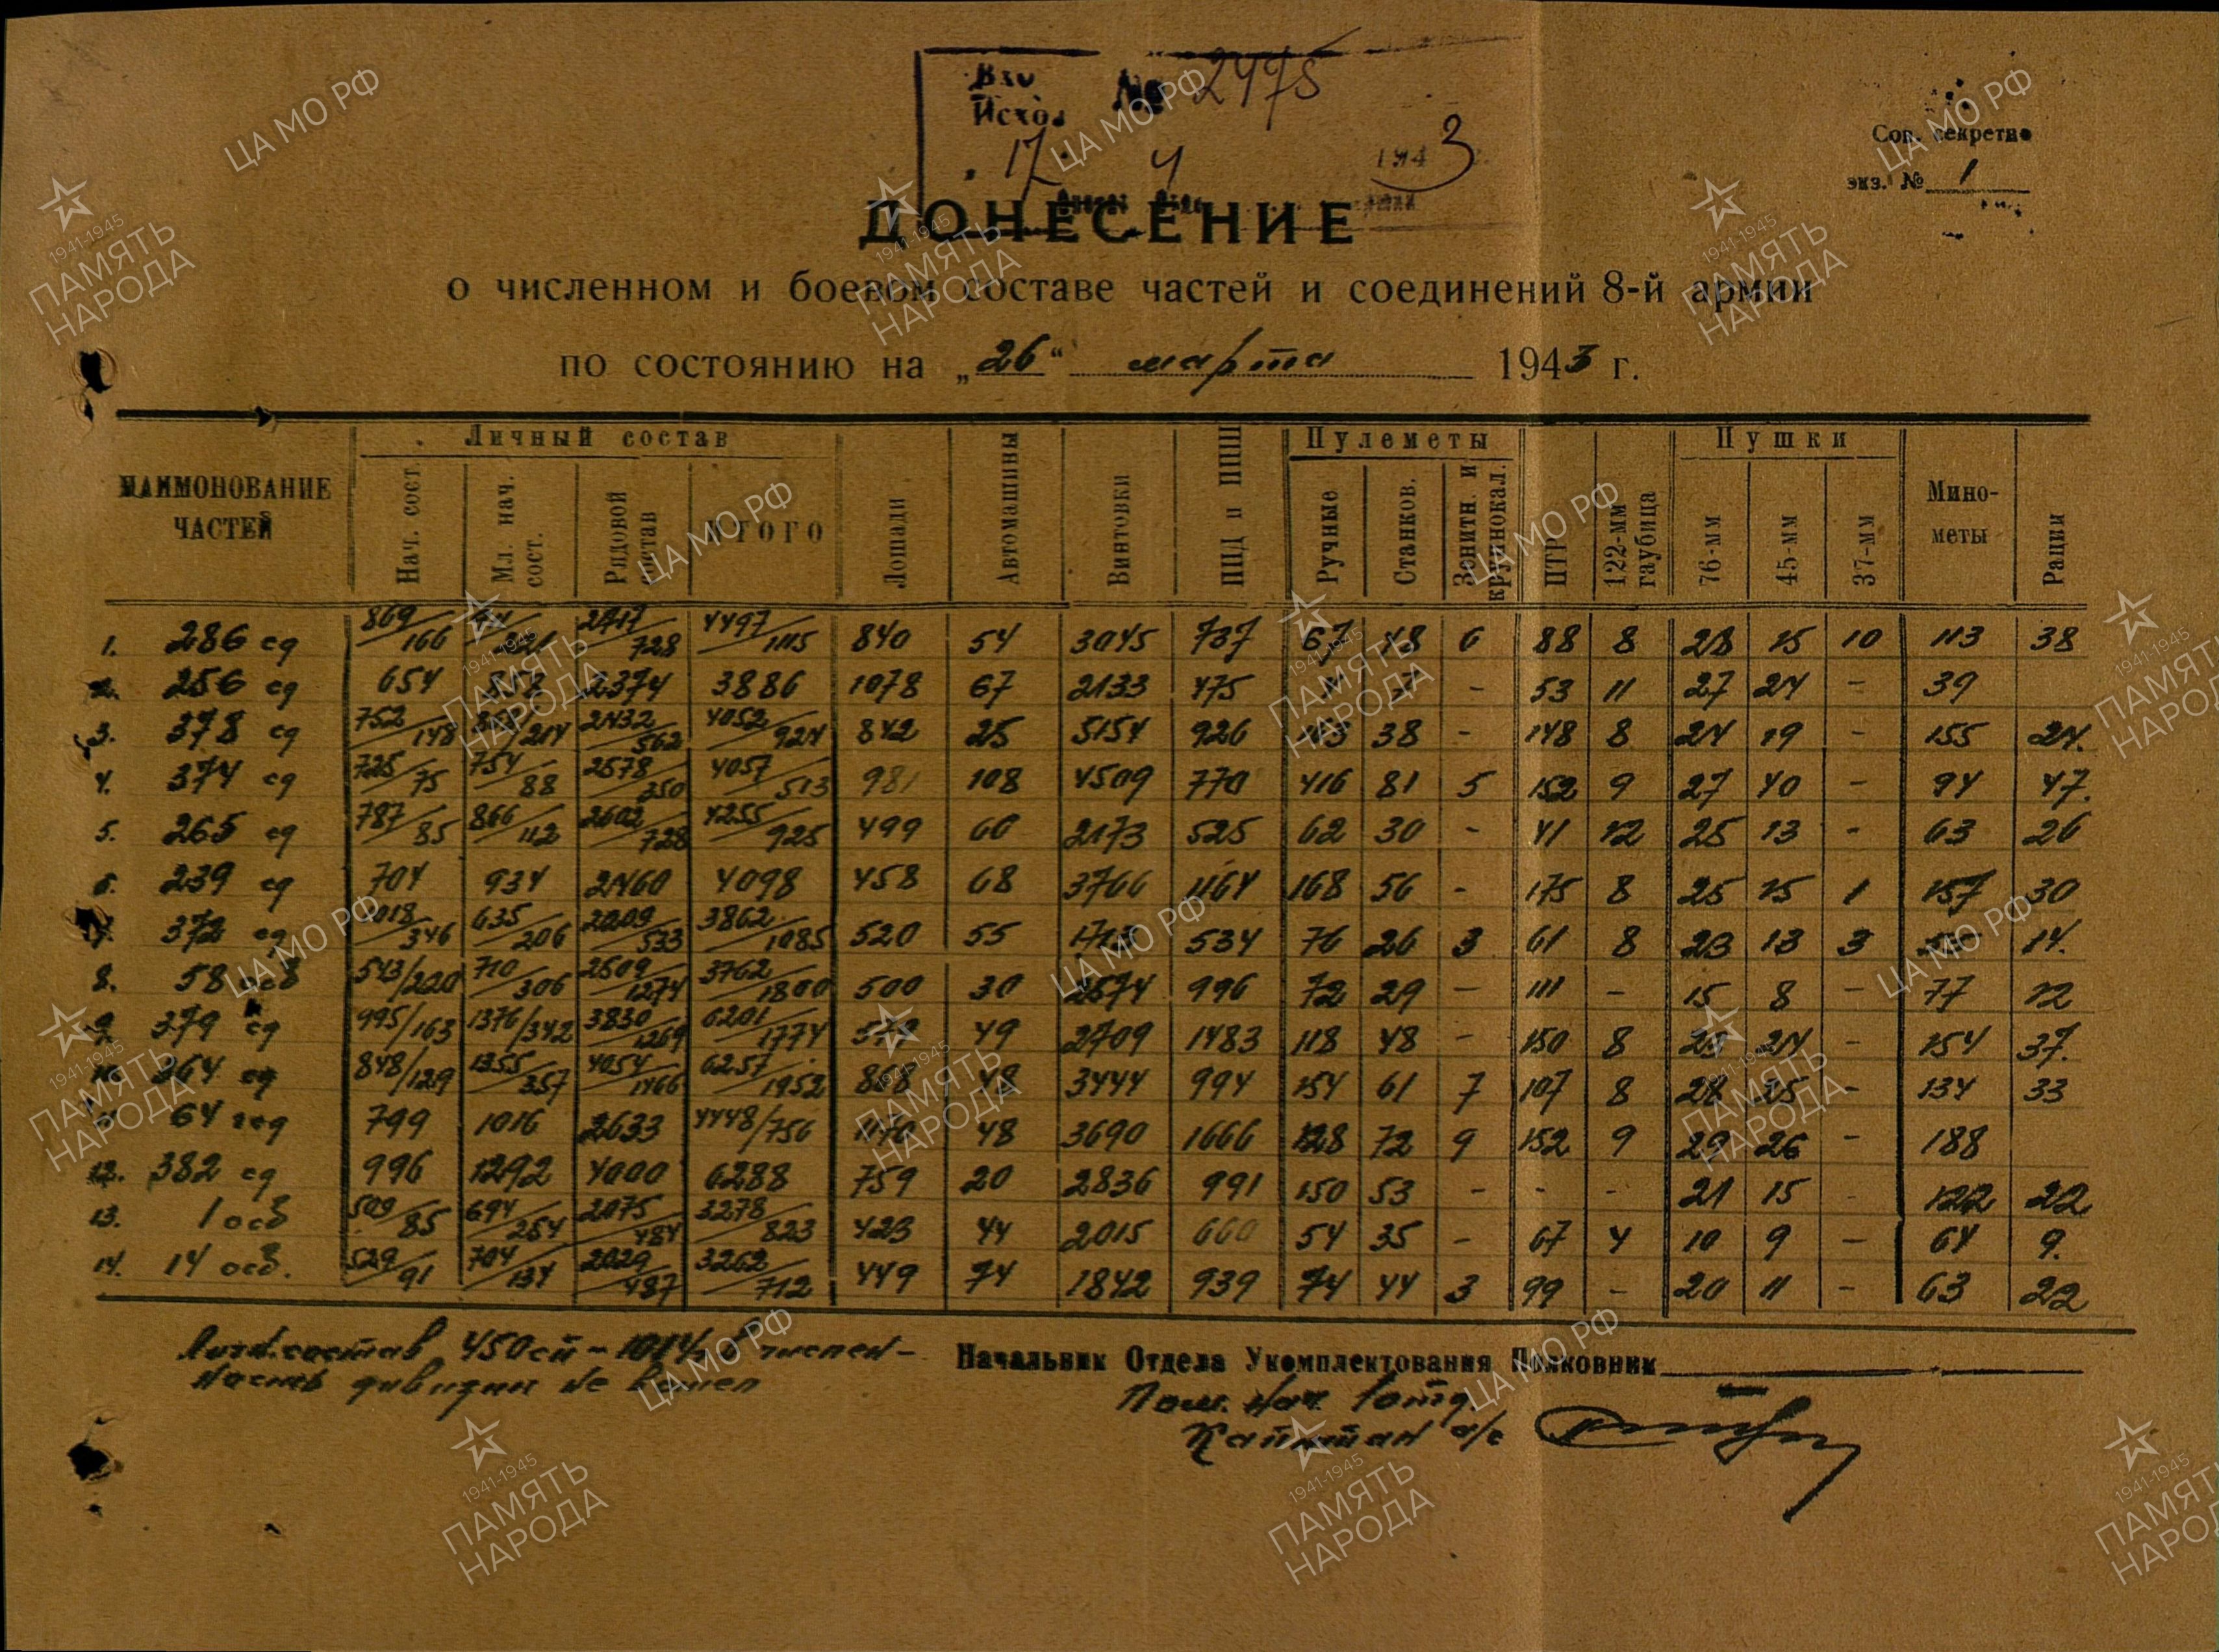 Вхо
Исход № 2475
17 4 1943 г.
Сов. секретно
экз. № 1
ДОНЕСЕНИЕ
о численном и боевом составе частей и соединений 8-й армии
по состоянию на „26“ марта 1943 г.
НАИМОНОВАНИЕ ЧАСТЕЙ
Личный состав
Нач. сост.
Мл. нач. сост.
Рядовой состав
ИТОГО
Лошади
Автомашины
Винтовки
ППД и ППШ
Пулеметы
Ручные
Станков.
Зенитн. и крупнокал.
ПТР
122-мм гаубица
Пушки
76-мм
45-мм
37-мм
Мино-
меты
Рации
1. 286 сд 869/166 2717/728 4497/1115 840 54 3045 737 67 48 6 88 8 28 15 10 113 38
2. 256 сд 654 858 2374 3886 1078 67 2133 475 53 11 27 24 - 39
3. 378 сд 752/148 2432/562 4052/924 842 25 5154 926 163 38 - 148 8 24 19 - 155 24.
4. 374 сд 725/75 754/88 2578/350 4057/513 981 108 4509 770 416 81 5 152 9 27 40 - 94 47.
5. 265 сд 787/85 866/112 2602/728 4255/925 499 66 2173 525 62 30 - 41 12 25 13 - 63 26
6. 239 сд 704 934 2460 4098 458 68 3766 1164 168 56 - 175 8 25 15 1 157 30
7. 372 сд 1018/346 635/206 2209/533 3862/1085 520 55 534 76 26 3 61 8 23 13 3 14.
8. 58 осб 543/220 710/306 2509/1274 3762/1800 500 30 2574 996 72 29 - 111 - 15 8 - 77 12
9. 379 сд 995/163 1376/342 3830/1269 6201/1774 49 2709 1483 118 48 - 150 8 25 24 - 154 37.
10. 364 сд 848/129 1355/357 4054/1466 6257/1952 868 48 3444 994 154 61 7 107 8 28 25 - 134 33
11. 64 гсд 799 1016 2633 4448/756 48 3690 1666 128 72 9 152 9 29 26 - 188
12. 382 сд 996 1292 4000 6288 759 20 2836 991 150 53 - - - 21 15 - 122 22
13. 1 осб 509/85 694/254 2075/484 3278/823 423 44 2015 660 54 35 - 67 4 10 9 - 64 9.
14. 14 осб. 529/91 704/134 2029/487 3262/712 449 74 1842 939 74 44 3 99 - 20 11 - 63 22
Личн. состав 450 сп - 1014 в числен-
ность дивизии не вошел
Начальник Отдела Укомплектования Полковник
Пом. Нач. 1 отд.
Капитан а/с
ЦА МО РФ
1941-1945
ПАМЯТЬ НАРОДА